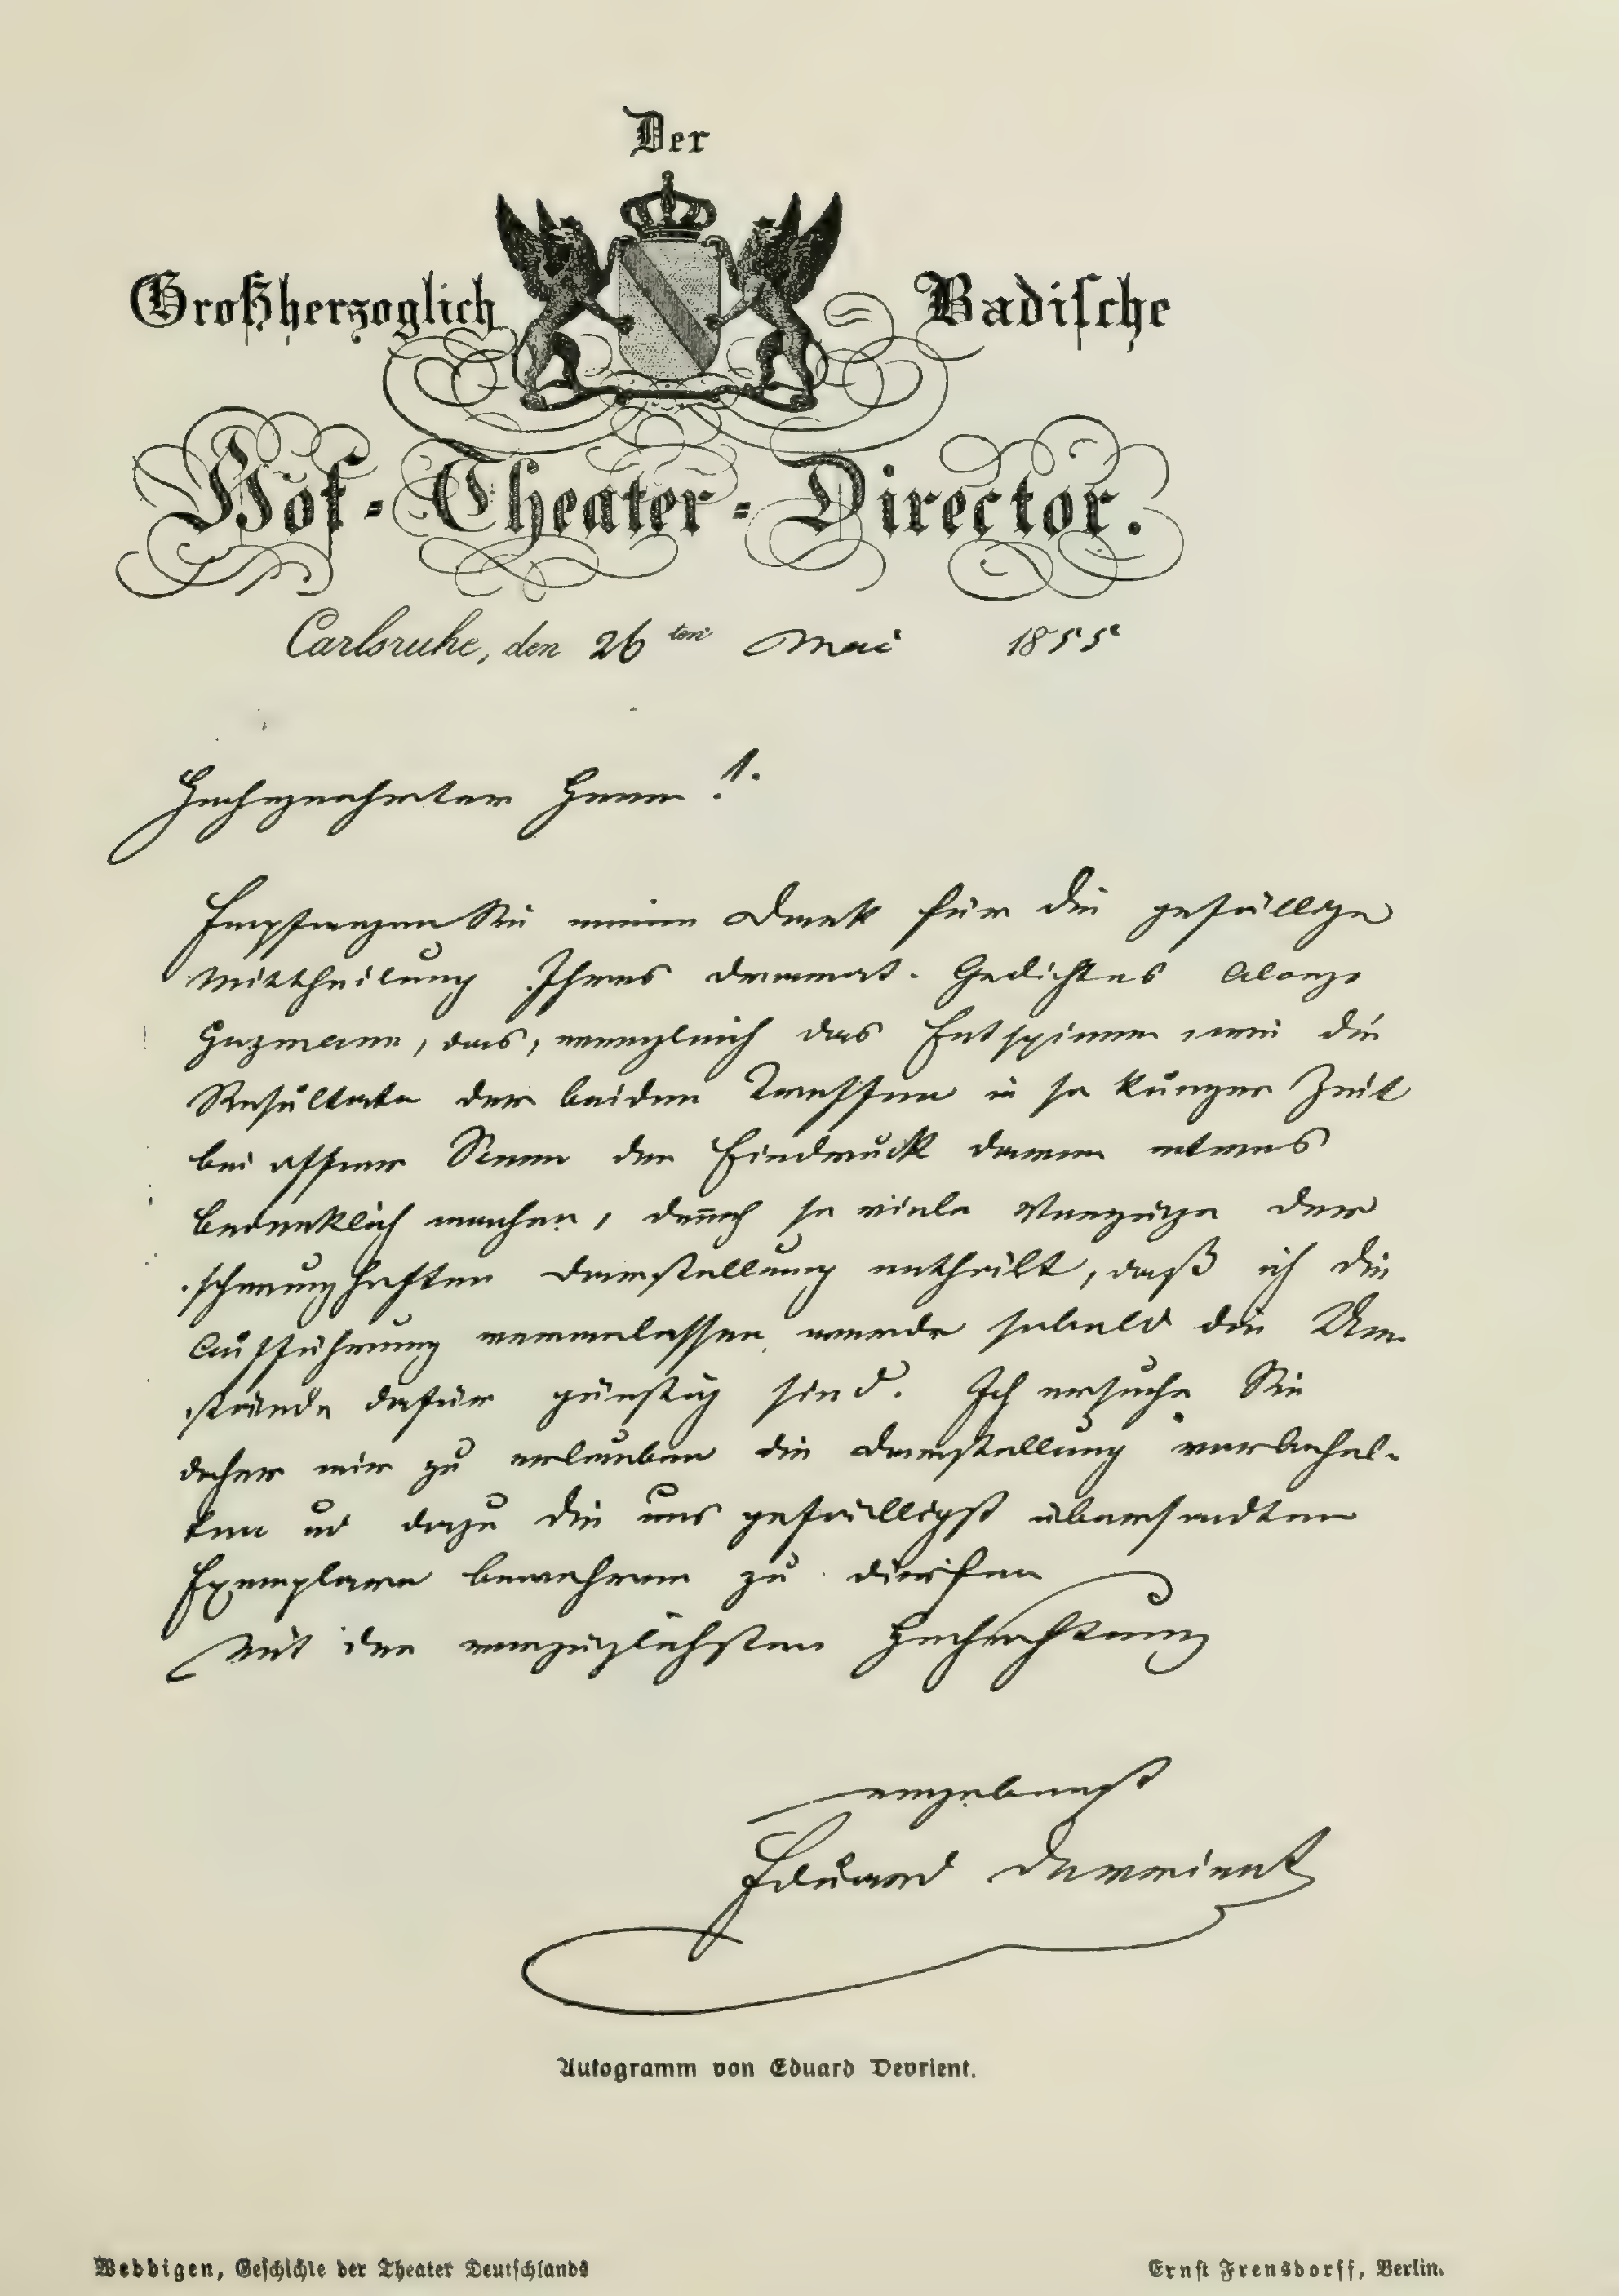 Der
Großherzoglich Badische
Hof-Theater-Director.
Carlsruhe, den 26ten Mai 1855
Hochgeehrter Herr!
Empfangen Sie meinen Dank für die gefällige
Mittheilung Ihres dramat. Gedichtes Alonzo
Guzmann, das, wenngleich das Entspinnen wie die
Resultate der beiden Treffen in so kurzer Zeit
bei offner Scene den Eindruck daran etwas
bedenklich machen, dennoch so viele Vorzüge der
schwunghaften Darstellung enthält, daß ich die
Aufführung veranlassen werde sobald die Um-
stände dafür günstig sind. Ich ersuche Sie
daher mir zu erlauben die Darstellung vorbehal-
ten und dazu die uns gefälligst übersandten
Exemplare bewahren zu dürfen
Mit der vorzüglichsten Hochachtung
ergebenst
Eduard Devrient
Autogramm von Eduard Devrient.
Weddigen, Geschichte der Theater Deutschlands
Ernst Frensdorff, Berlin.